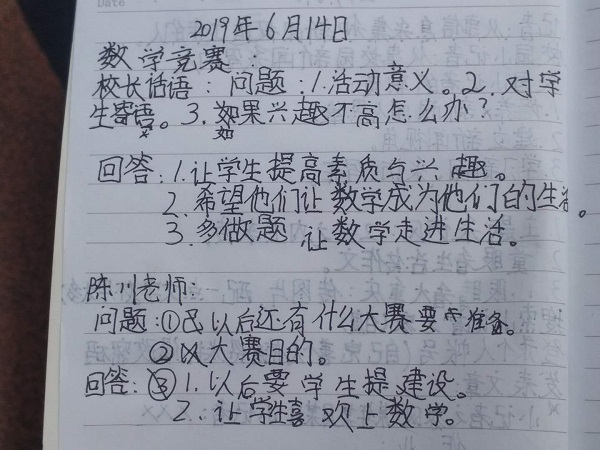 2019年6月14日
数学竞赛:
校长话语:问题:1.活动意义。2.对学
生寄语。3.如果兴趣不高怎么办?
回答:1.让学生提高素质与兴趣。
2.希望他们让数学成为他们的生活。
3.多做题让数学走进生活。
陈川老师:
问题:①以后还有什么大赛要准备。
②大赛目的。
回答:1.以后要学生提建设。
2.让学生喜欢上数学。